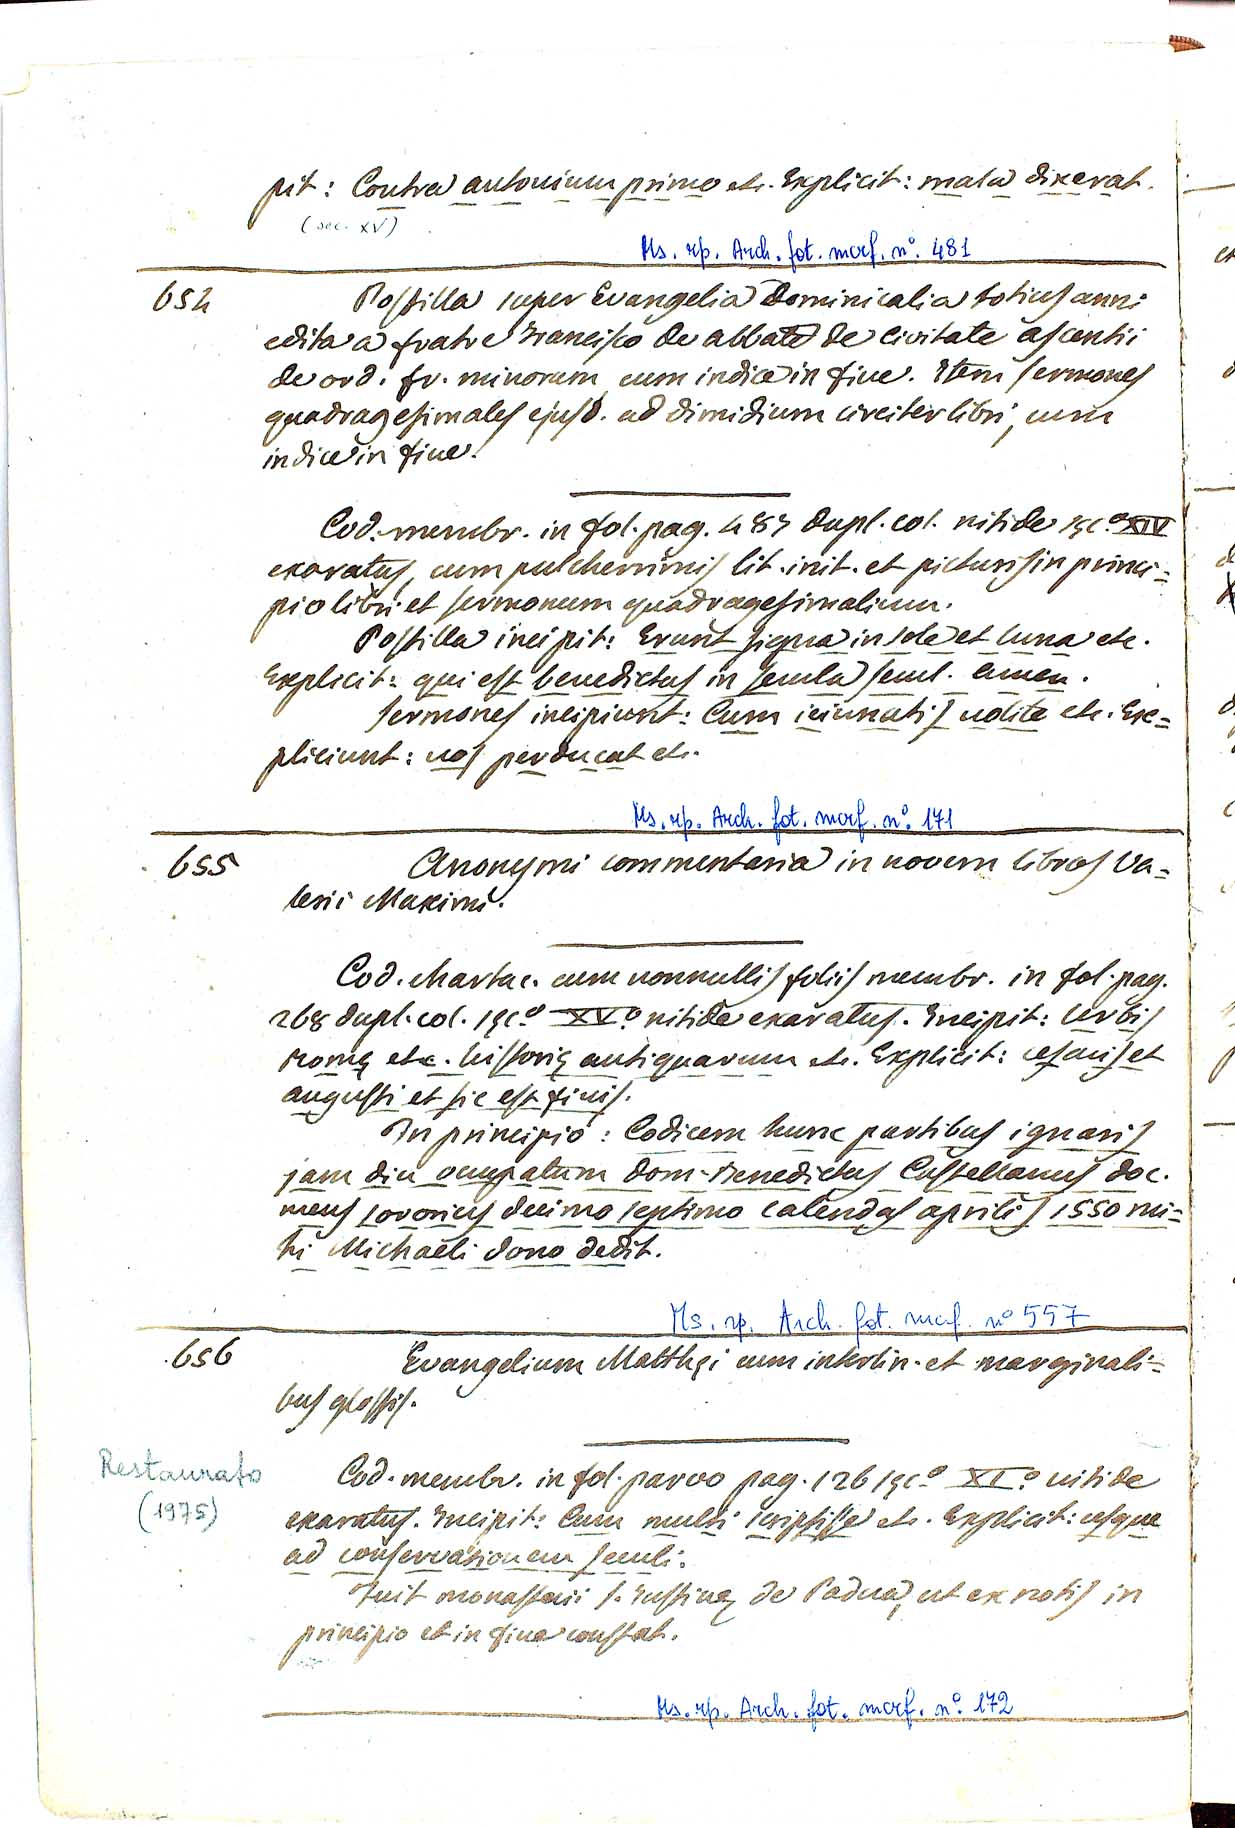 pit: Contra antonium primo etc. Explicit: mala dixerat.
(sec. XV)
Ms. rip. Arch. fot. mcrf. n° 481
654 Postilla super Evangelia Dominicalia totius anni
edita a fratre Francisco de abbate de Civitate astensii
de ord. fr. minorum, cum indice in fine. Item sermones
quadragesimales ejusd. ad dimidium circiter libri, cum
indice in fine.
Cod. membr. in fol. pag. 487 dupl. col. nitide sęc.° XIV
exaratus, cum pulcherrimis lit. init. et picturis in princi=
pio libri et sermonum quadragesimalium.
Postilla incipit: Erunt signa in sole et luna etc.
Explicit: qui est benedictus in secula secul. amen.
Sermones incipiunt: Cum ieiunatis nolite etc. Ex=
pliciunt: nos perducat etc.
Ms. rip. Arch. fot. mcrf. n° 171
655 Anonymi commentaria in novem libros Va=
lerii Maximi.
Cod. chartac. cum nonnullis foliis membr. in fol. pag.
268 dupl. col. sęc.° XV.° nitide exaratus. Incipit: Urbis
Romę etc. historię antiquarum etc. Explicit: cesaris et
augusti et sic est finis.
In principio: Codicem hunc partibus ignaris
jam diu occupatum Dom. Benedictus Castellanus doc.
meus sororius decimo septimo calendas aprilis 1550 mi=
hi Michaeli dono dedit.
Ms. rip. Arch. fot. mcrf. n° 557
656 Evangelium Matthęi cum interlin. et marginali=
bus glossis.
Restaurato
(1975)
Cod. membr. in fol. parvo pag. 126 sęc.° XI.° nitide
exaratus. Incipit: Cum multi scripsisse etc. Explicit: usque
ad conservationem seculi.
Fuit monasterii S. Justinę de Padua, ut ex notis in
principio et in fine constat.
Ms. rip. Arch. fot. mcrf. n° 172